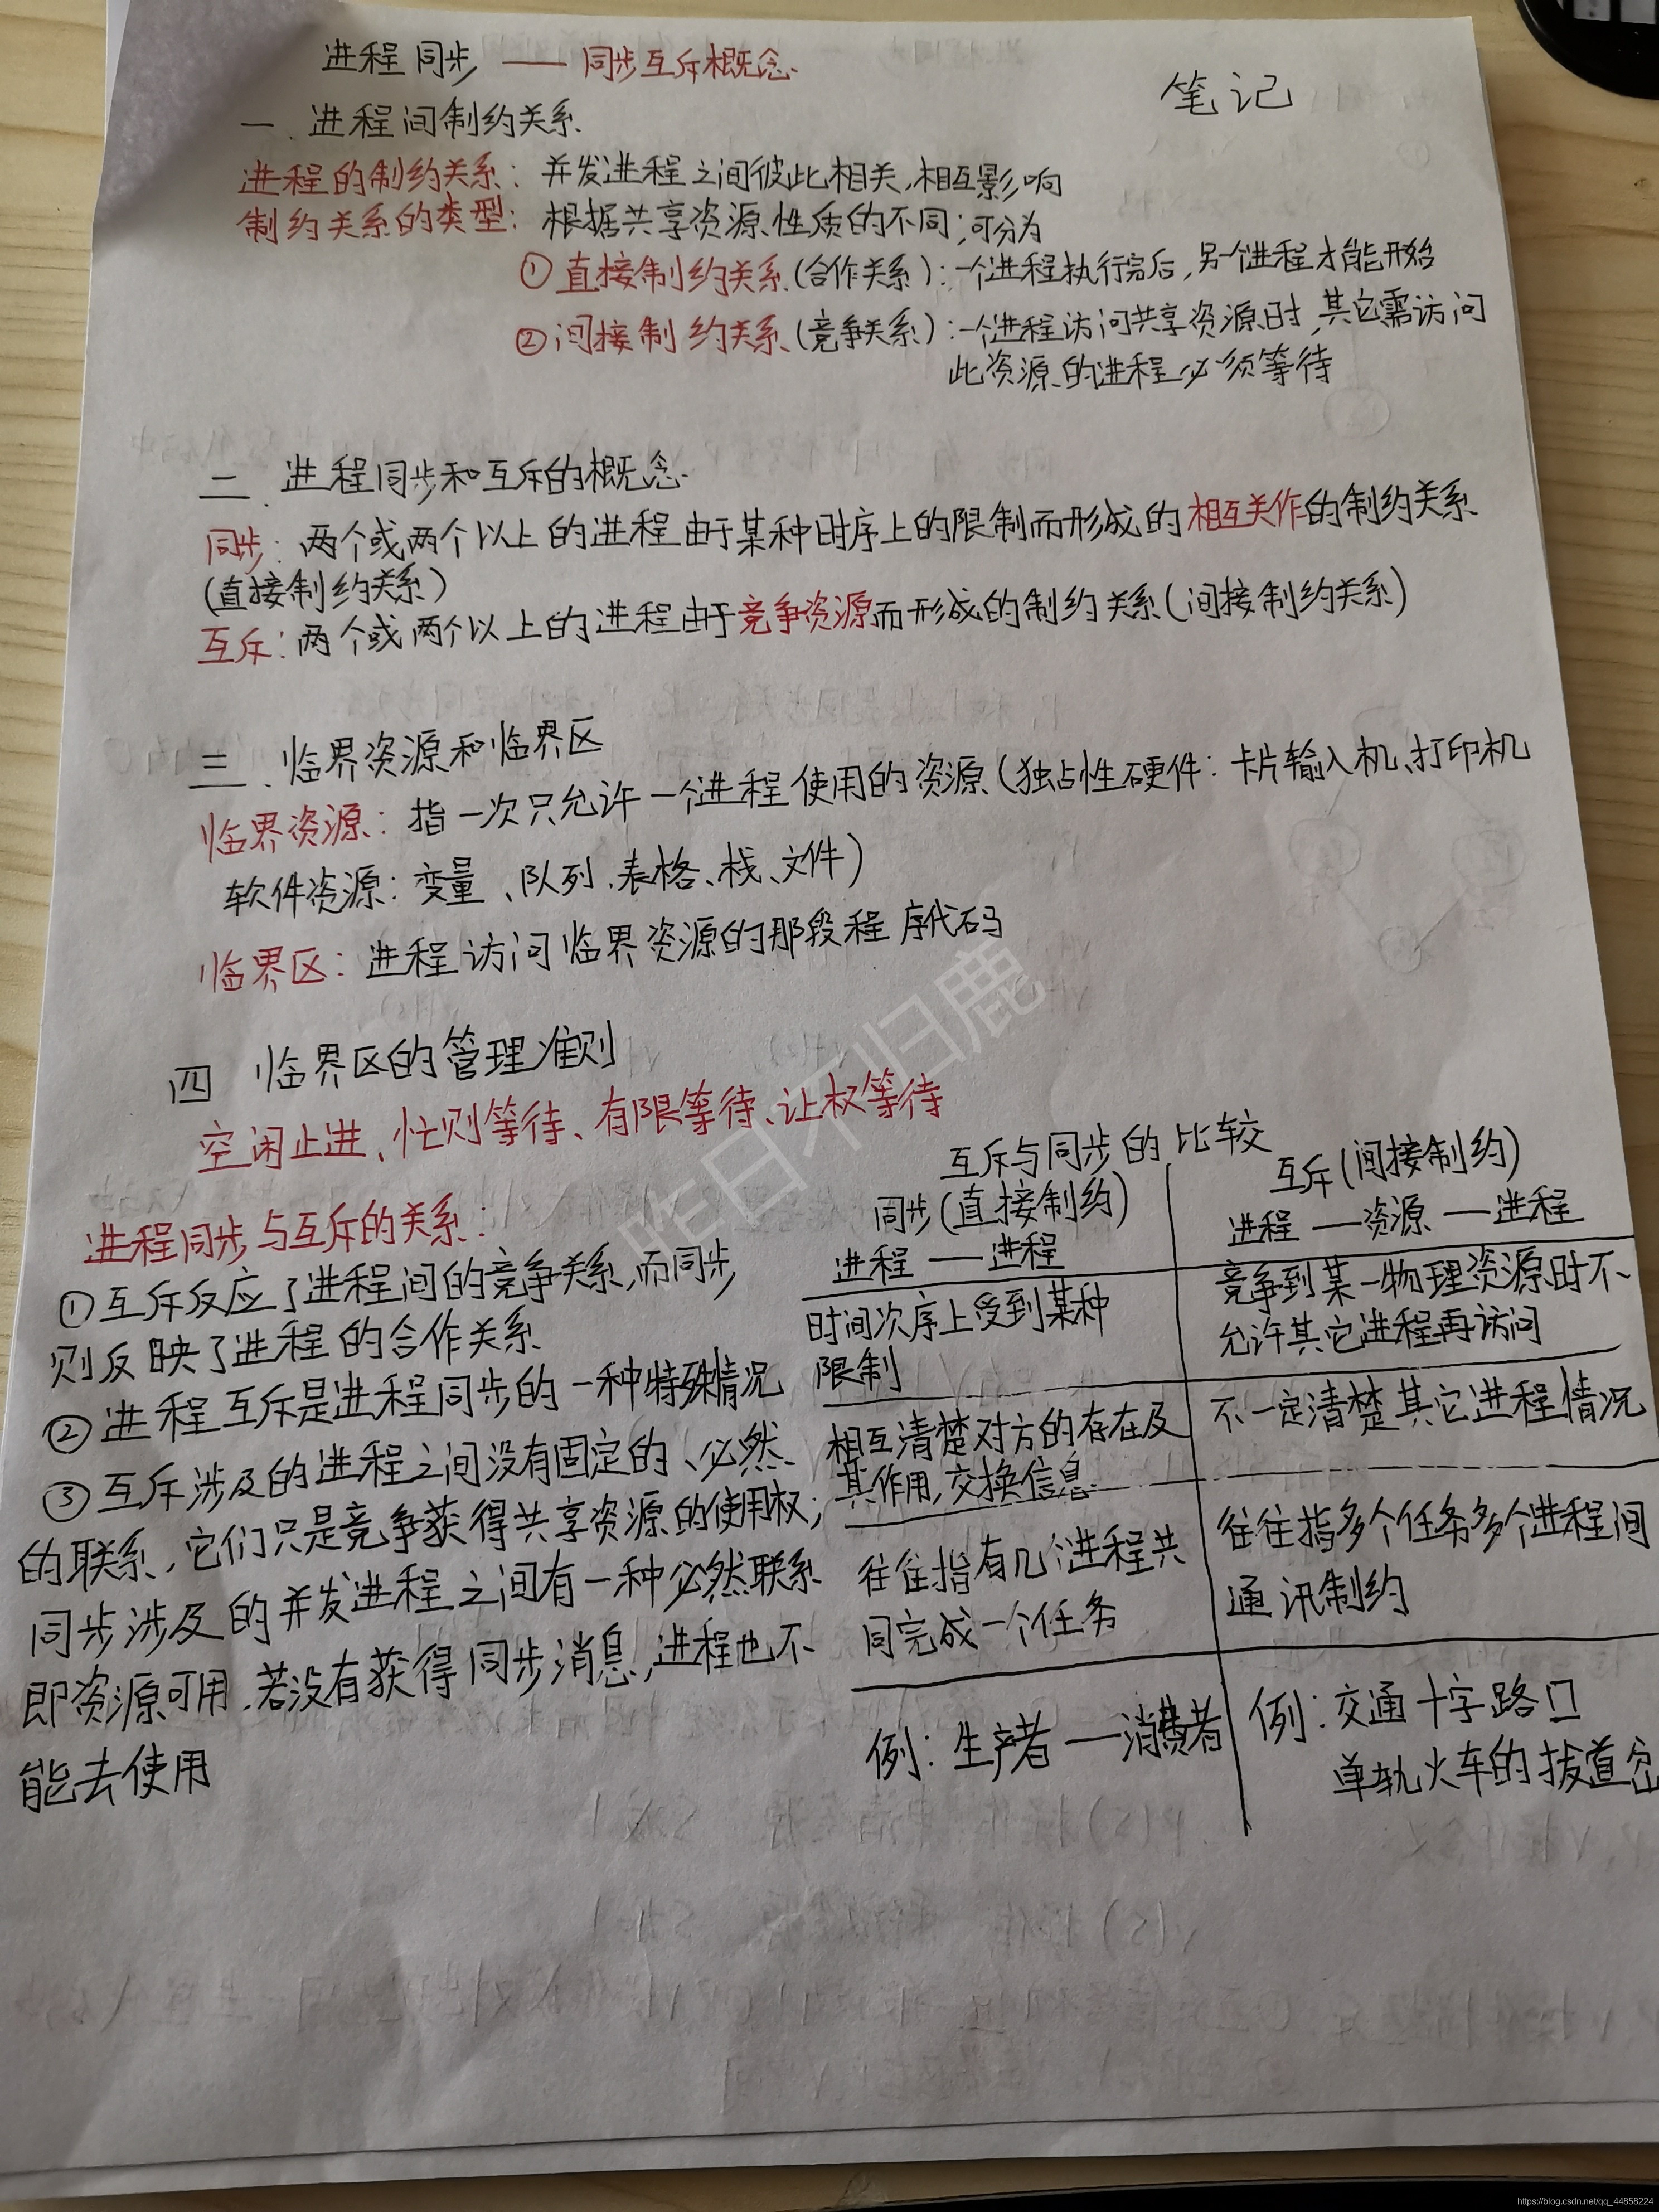 进程同步 —— 同步互斥概念
笔记
一、进程间制约关系
进程的制约关系：并发进程之间彼此相关,相互影响
制约关系的类型：根据共享资源性质的不同,可分为
①直接制约关系(合作关系)：一个进程执行完后,另一个进程才能开始
②间接制约关系(竞争关系)：一个进程访问共享资源时,其它需访问
此资源的进程必须等待
二、进程同步和互斥的概念
同步：两个或两个以上的进程由于某种时序上的限制而形成的相互关作的制约关系
(直接制约关系)
互斥：两个或两个以上的进程由于竞争资源而形成的制约关系(间接制约关系)
三、临界资源和临界区
临界资源：指一次只允许一个进程使用的资源(独占性硬件：卡片输入机、打印机
软件资源：变量、队列、表格、栈、文件)
临界区：进程访问临界资源的那段程序代码
四 临界区的管理准则
空闲止进、忙则等待、有限等待、让权等待
进程同步与互斥的关系：
①互斥反应了进程间的竞争关系,而同步
则反映了进程的合作关系
②进程互斥是进程同步的一种特殊情况
③互斥涉及的进程之间没有固定的、必然
的联系,它们只是竞争获得共享资源的使用权;
同步涉及的并发进程之间有一种必然联系
即资源可用,若没有获得同步消息,进程也不
能去使用
互斥与同步的比较
同步(直接制约)
进程 — 进程
互斥(间接制约)
进程 — 资源 — 进程
时间次序上受到某种
限制
竞争到某一物理资源时不
允许其它进程再访问
相互清楚对方的存在及
其作用,交换信息
不一定清楚其它进程情况
往往指有几个进程共
同完成一个任务
往往指多个任务多个进程间
通讯制约
例：生产者 — 消费者
例：交通十字路口
单轨火车的拔道岔
昨日不归鹿
https://blog.csdn.net/qq_44858224